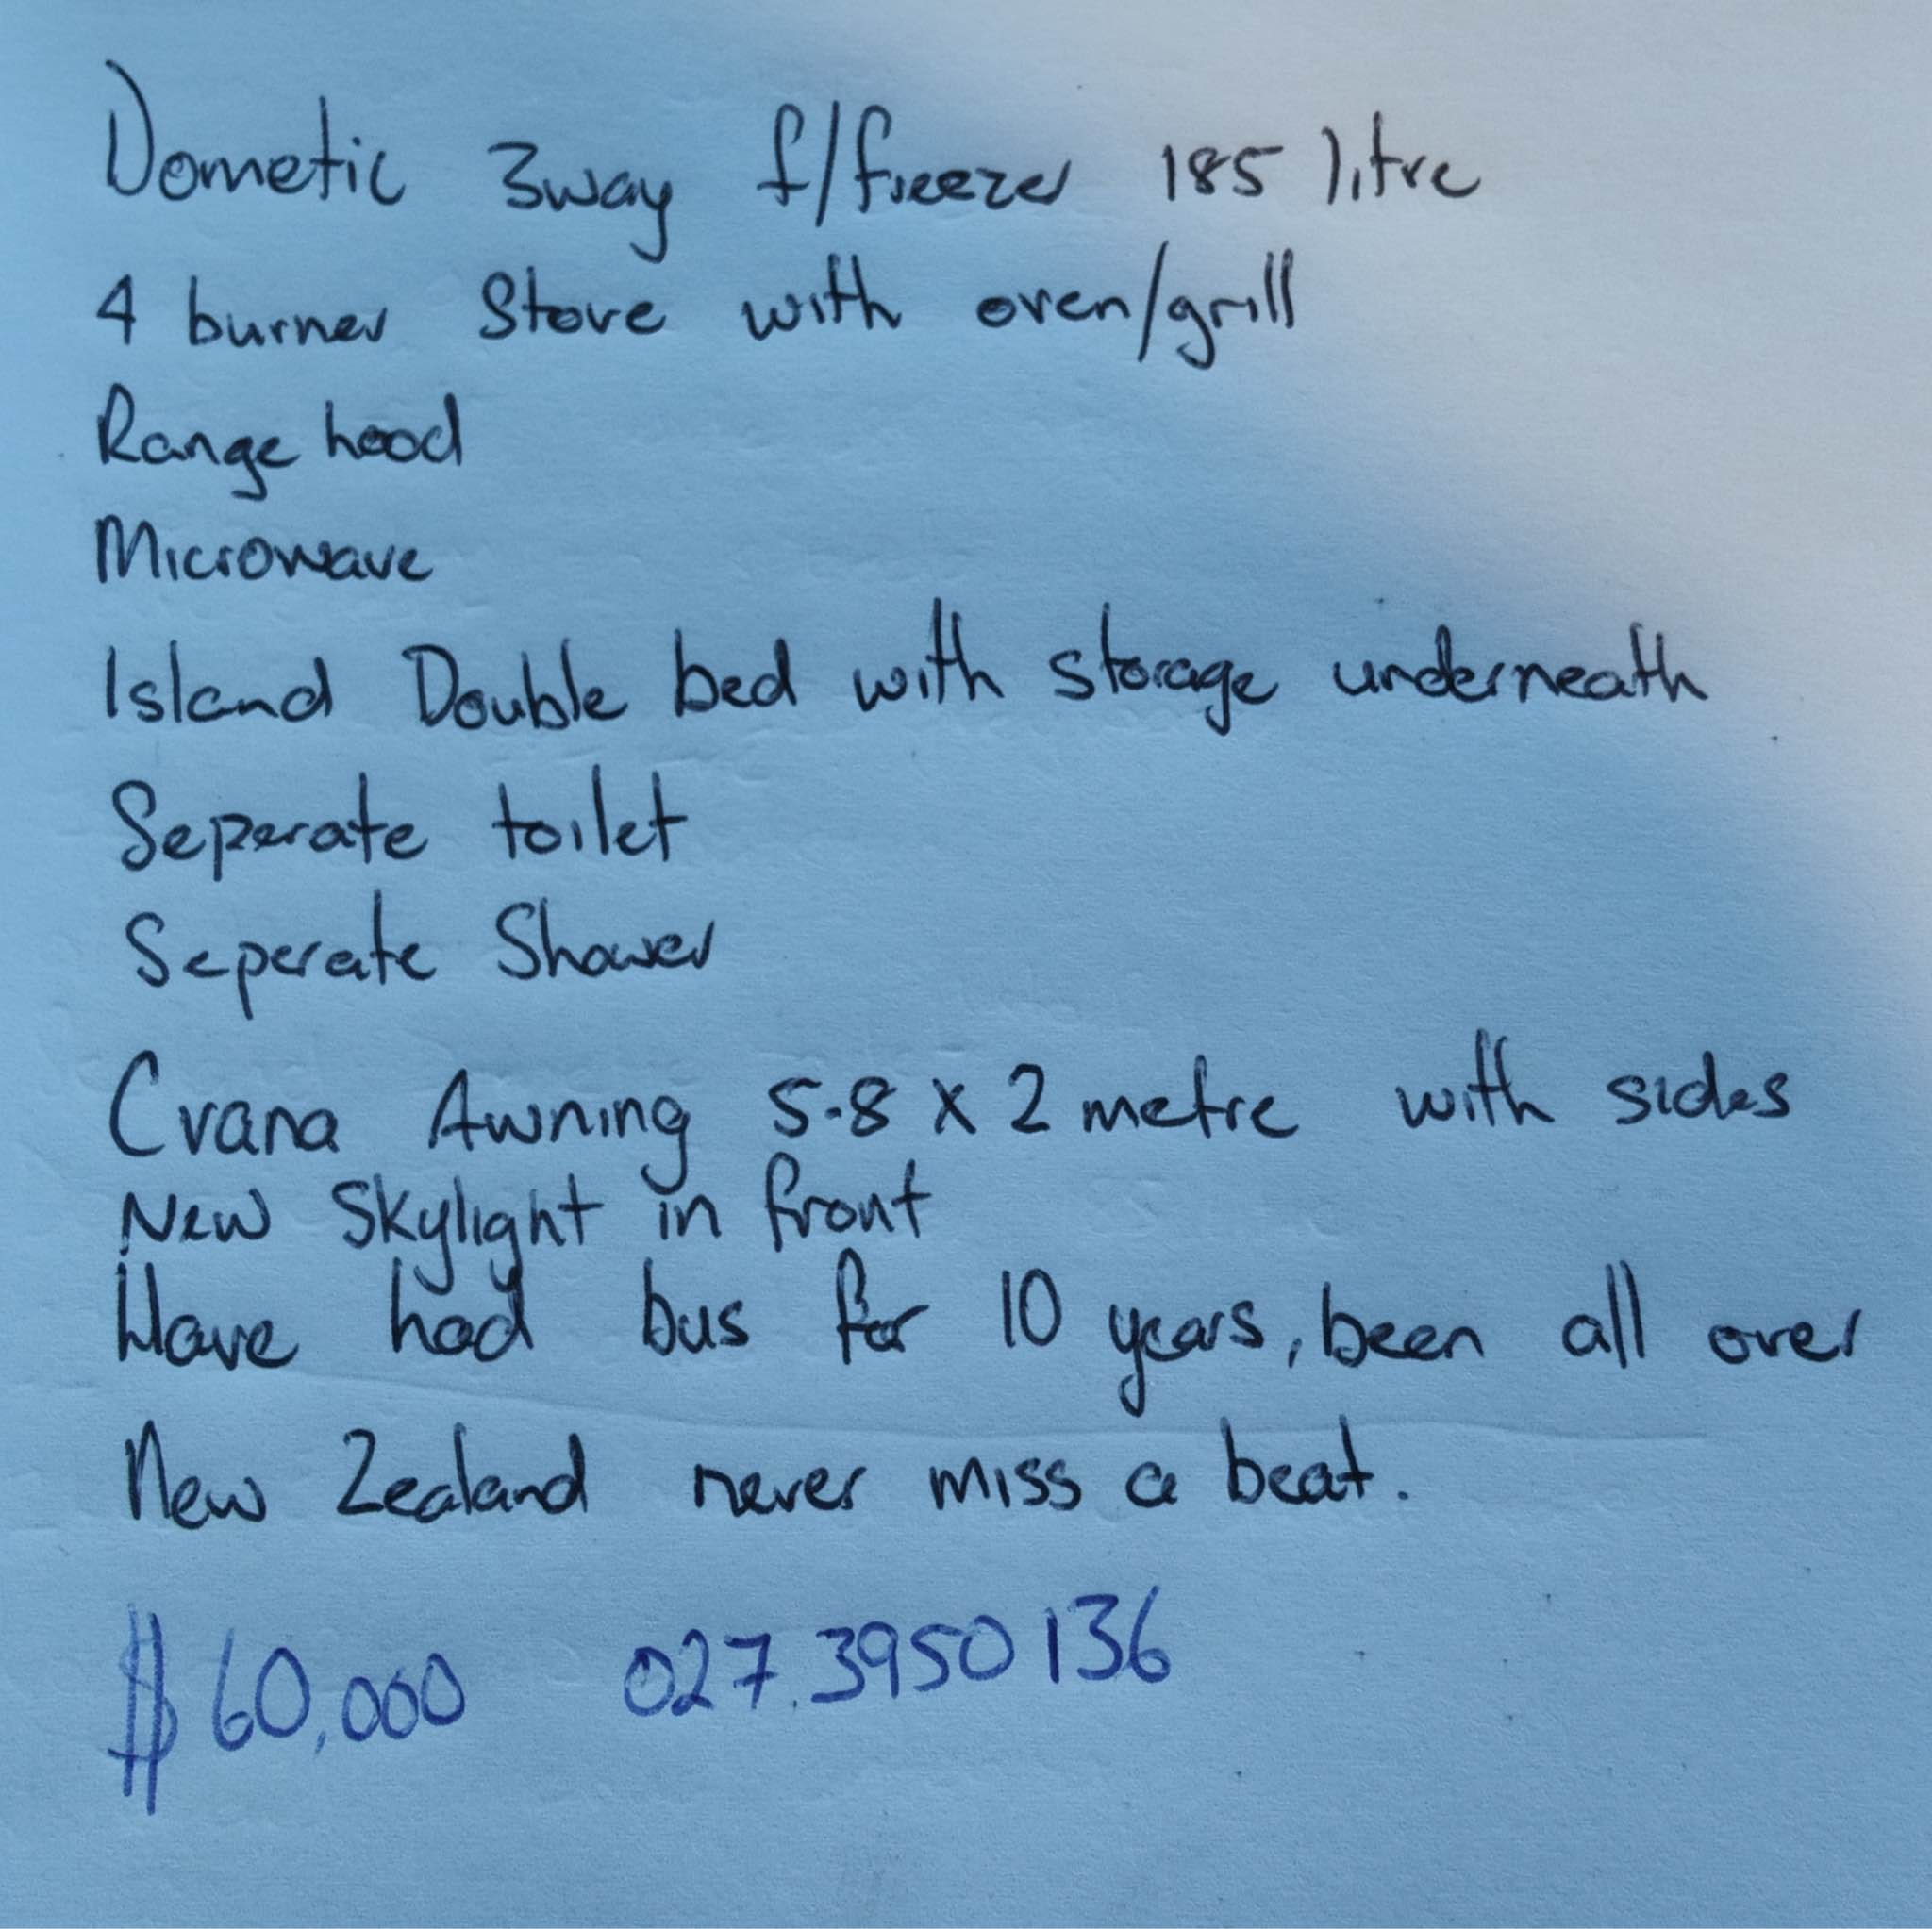 Dometic 3way f/freezer 185 litre
4 burner Stove with oven/grill
Range hood
Microwave
Island Double bed with storage underneath
Seperate toilet
Seperate Shower
Crana Awning 5.8 x 2 metre with sides
New Skylight in front
Have had bus for 10 years, been all over
New Zealand never miss a beat.
$60,000 027.3950136